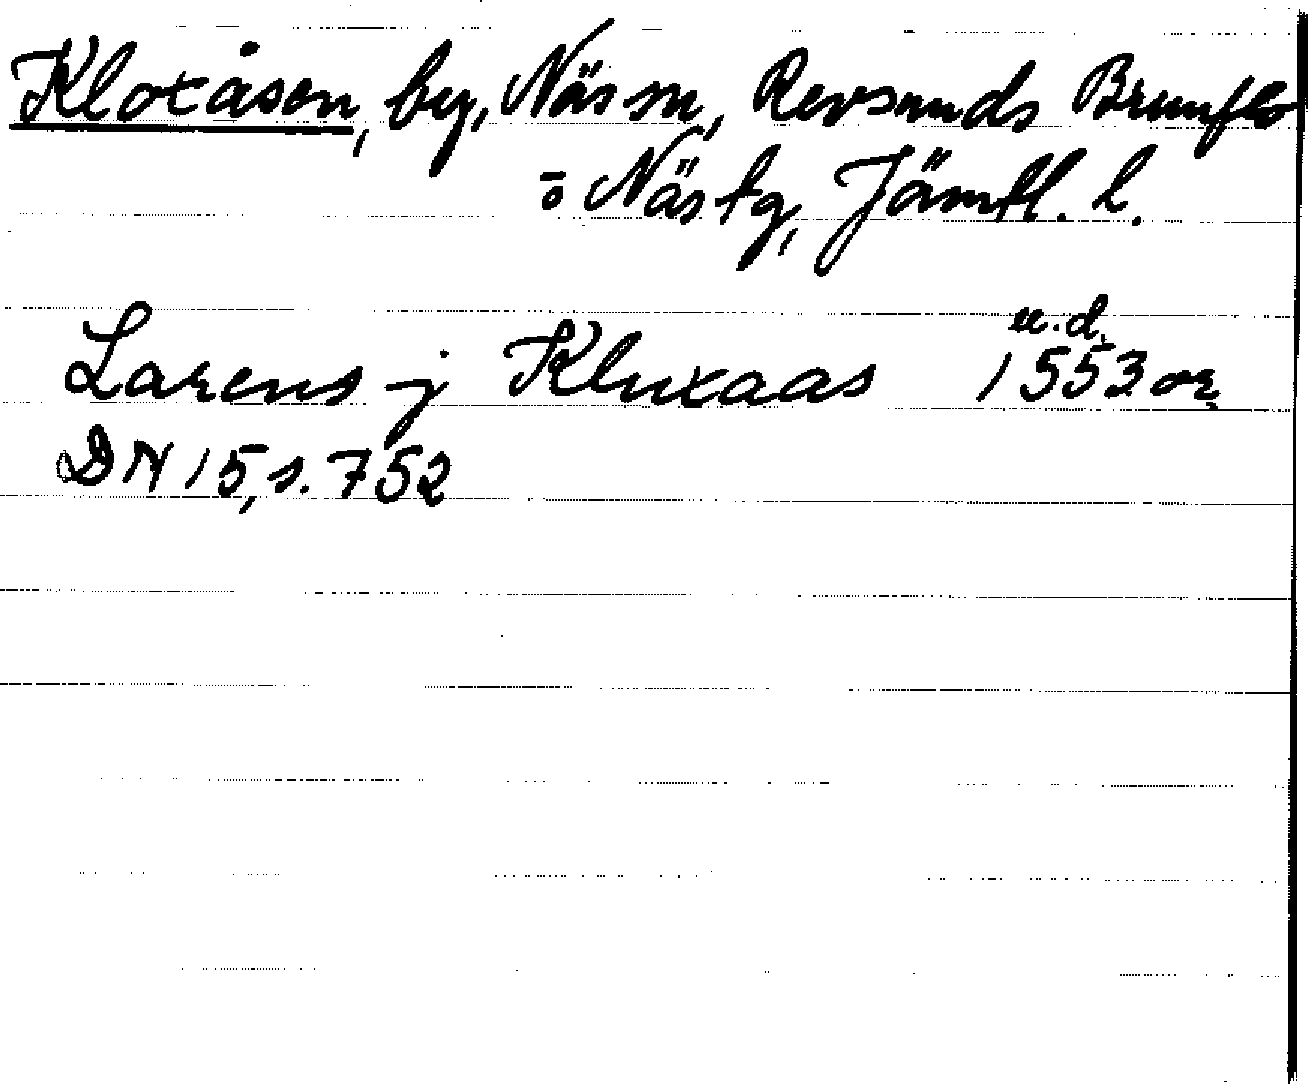 Kloxåsen, by, Näs sn, Revsunds Brunflo
o Näs tg, Jämtl. l.
u.d.
Larens j Kluxaas 1553 or.
DN 15, s. 752